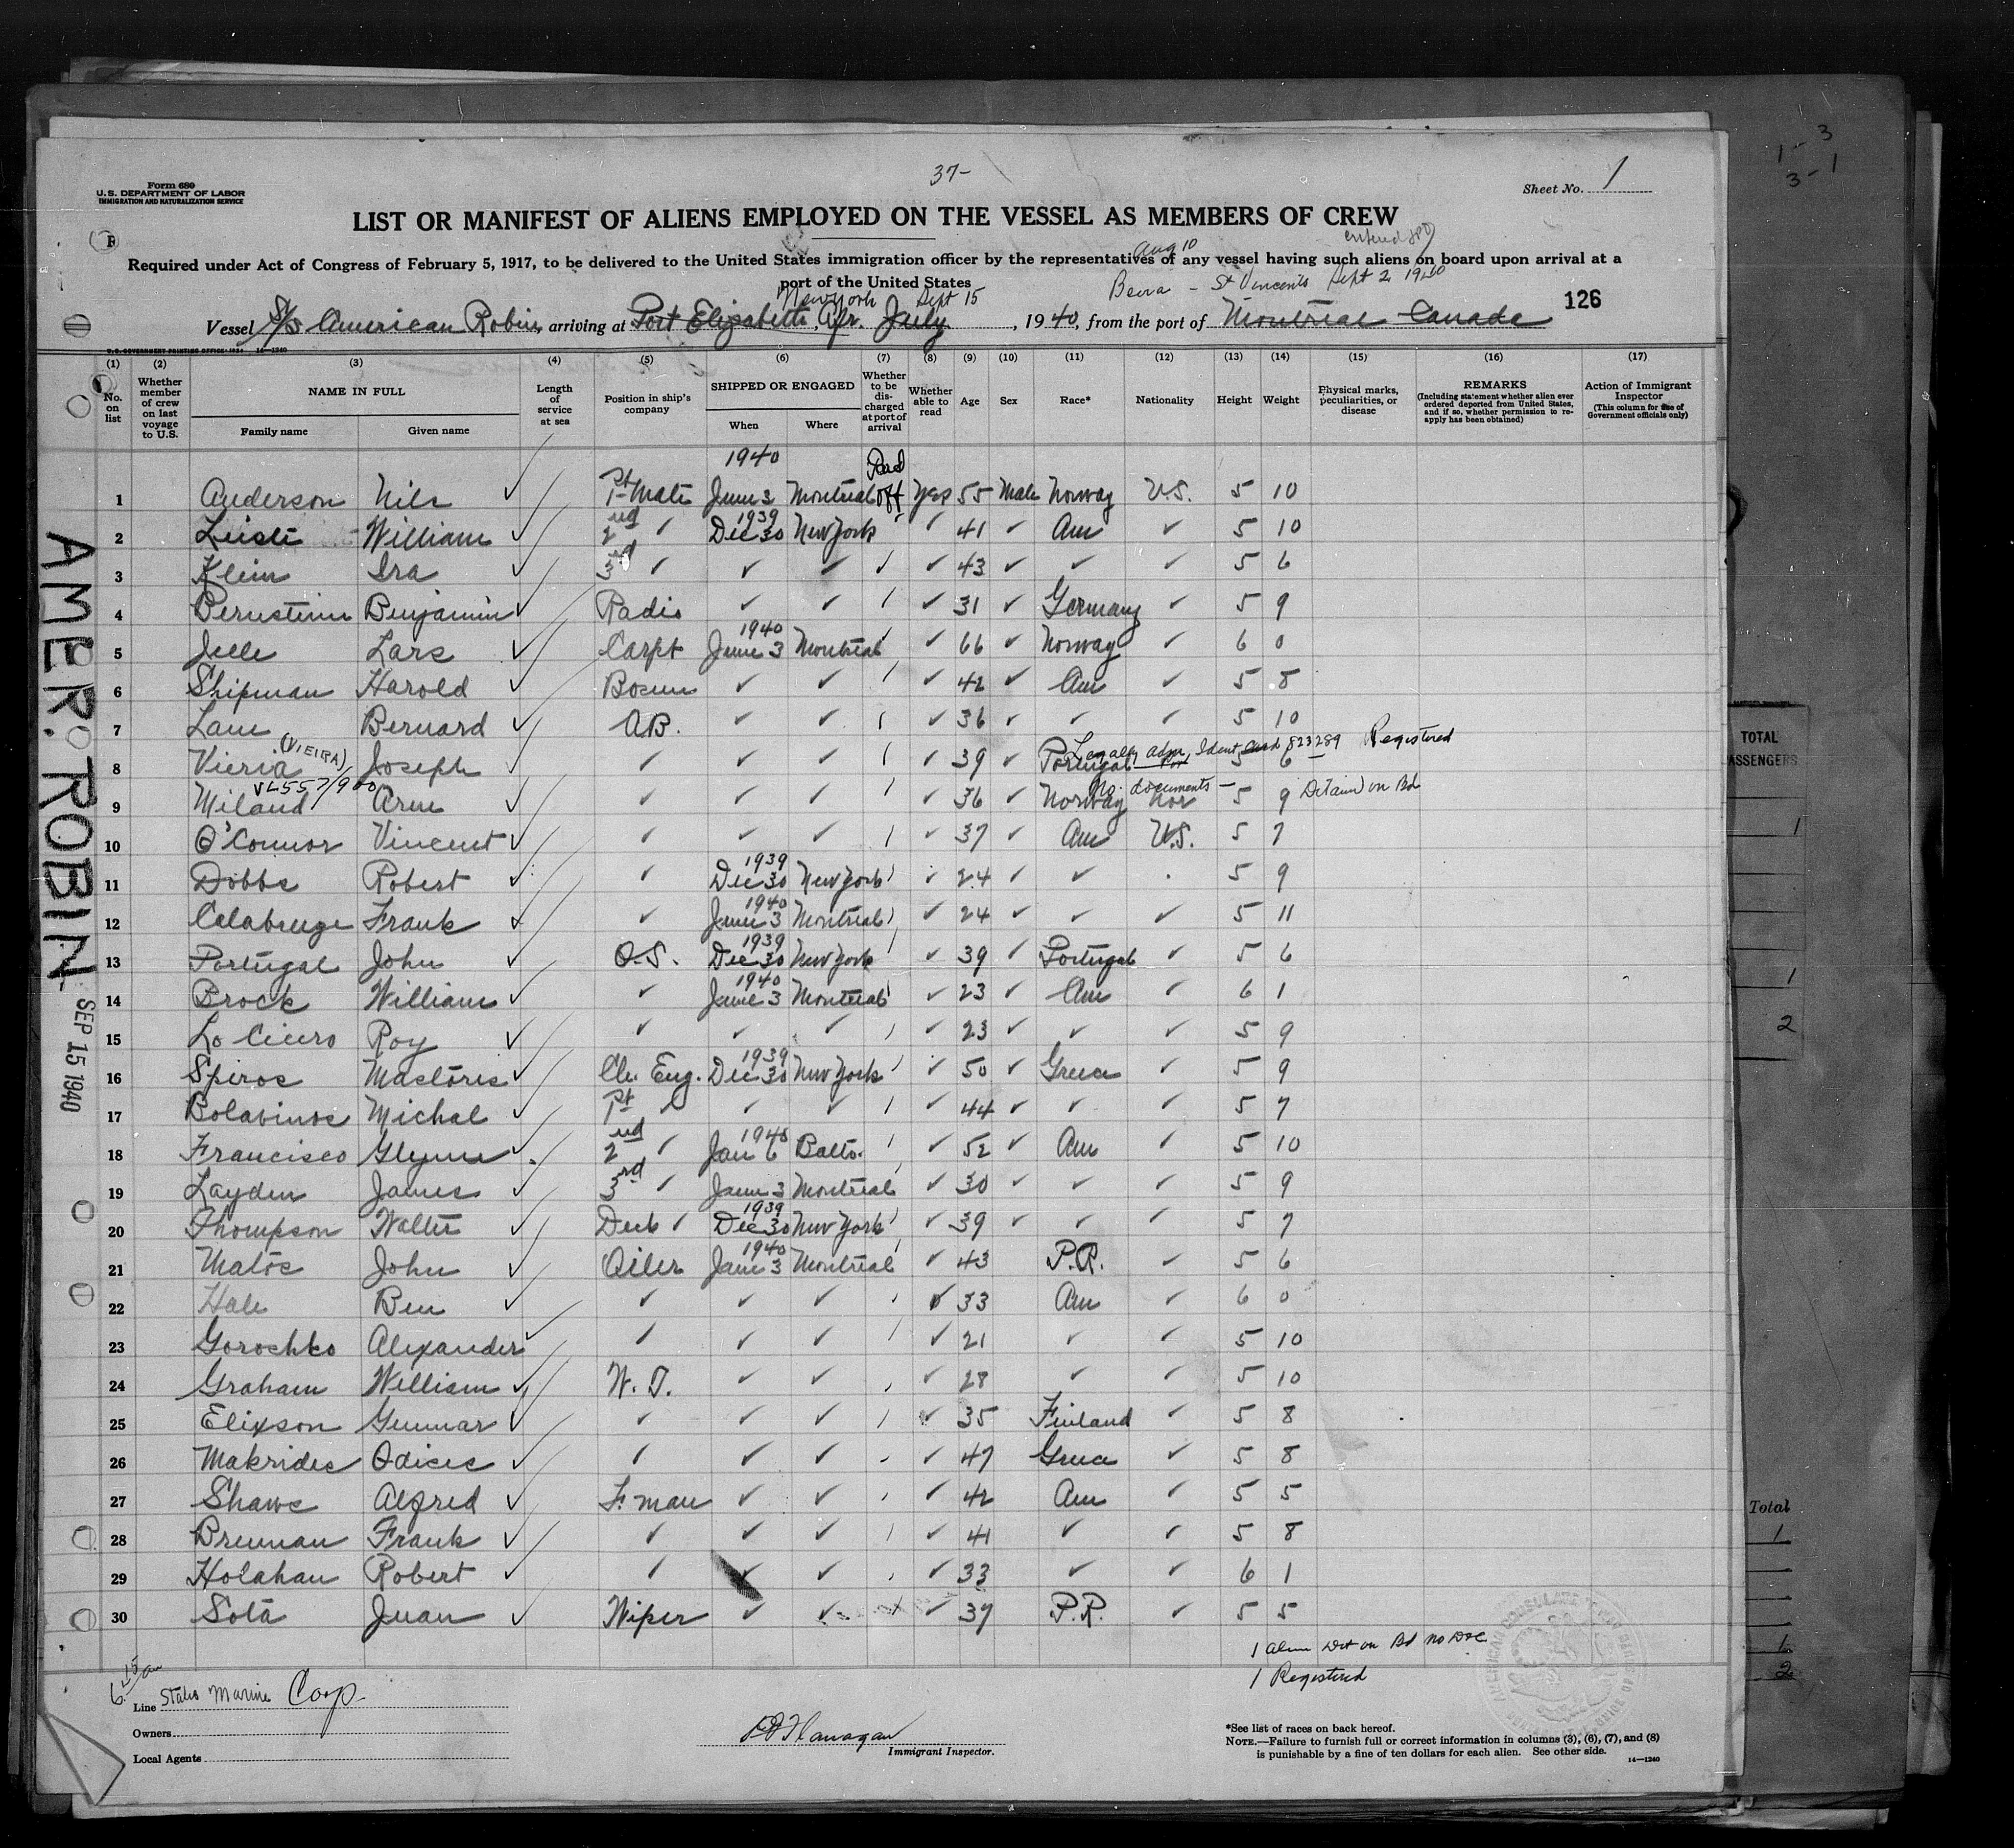 1 - 3
3 - 1
37-
Form 680
U.S. DEPARTMENT OF LABOR
IMMIGRATION AND NATURALIZATION SERVICE
Sheet No. 1
LIST OR MANIFEST OF ALIENS EMPLOYED ON THE VESSEL AS MEMBERS OF CREW
entered
Aug 10
Required under Act of Congress of February 5, 1917, to be delivered to the United States immigration officer by the representatives of any vessel having such aliens on board upon arrival at a
port of the United States
New York Sept 15 Beira - St Vincents Sept 2 1940
126
Vessel S/S American Robin, arriving at Port Elizabeth, Afr. July, 1940, from the port of Montreal Canada
U.S. GOVERNMENT PRINTING OFFICE 14-1240
(1) (2) (3) (4) (5) (6) (7) (8) (9) (10) (11) (12) (13) (14) (15) (16) (17)
No. on list Whether member of crew on last voyage to U.S. NAME IN FULL Family name Given name Length of service at sea Position in ship's company SHIPPED OR ENGAGED When Where Whether to be discharged at port of arrival Whether able to read Age Sex Race* Nationality Height Weight Physical marks, peculiarities, or disease REMARKS (Including statement whether alien ever ordered deported from United States, and if so, whether permission to reapply has been obtained) Action of Immigrant Inspector (This column for use of Government officials only)
1940 Paid
1 Anderson Nils ✓ 1st Mate June 3 Montreal off Yes 55 Male Norway U.S. 5 10
1939
2 William ✓ 2nd ✓ Dec 30 New York ✓ 41 ✓ Am ✓ 5 10
3 Klein Ira ✓ 3rd ✓ ✓ ✓ ✓ 43 ✓ ✓ ✓ 5 6
4 Bernstein Benjamin ✓ Radio ✓ ✓ ✓ 31 ✓ Germany ✓ 5 9
1940
5 Jelle Lars ✓ Carpt June 3 Montreal ✓ 66 ✓ Norway ✓ 6 0
6 Shipman Harold ✓ Bosun ✓ ✓ ✓ 42 ✓ Am ✓ 5 8
7 Lam Bernard ✓ AB. ✓ ✓ ✓ 36 ✓ ✓ ✓ 5 10
(VIEIRA) Legally adm, Ident card 823289 Registered
8 Vieria Joseph ✓ ✓ ✓ ✓ ✓ 39 ✓ Portugal Port 5 6
VL557/900 No documents - Detained on Bd
9 Miland Arne ✓ ✓ ✓ ✓ ✓ 36 ✓ Norway Nor 5 9
10 O'Connor Vincent ✓ ✓ ✓ ✓ ✓ 37 ✓ Am U.S. 5 7
1939
11 Dobbs Robert ✓ ✓ Dec 30 New York ✓ 24 ✓ ✓ 5 9
1940
12 Calabruge Frank ✓ ✓ June 3 Montreal ✓ 24 ✓ ✓ ✓ 5 11
1939
13 Portugal John ✓ O.S. Dec 30 New York ✓ 39 ✓ Portugal ✓ 5 6
1940
14 Brock William ✓ ✓ June 3 Montreal ✓ 23 ✓ Am ✓ 6 1
15 Lo Cicero Roy ✓ ✓ ✓ ✓ ✓ 23 ✓ ✓ ✓ 5 9
1939
16 Spiros Mastoris ✓ Ch. Eng. Dec 30 New York ✓ 50 ✓ Greece ✓ 5 9
17 Bolavinos Michal ✓ 1st ✓ ✓ ✓ ✓ 44 ✓ ✓ ✓ 5 7
1940
18 Francisco Glynne 2nd ✓ Jan 6 Balto. ✓ 52 ✓ Am ✓ 5 10
19 Layden James ✓ 3rd ✓ June 3 Montreal ✓ 30 ✓ ✓ ✓ 5 9
1939
20 Thompson Walter ✓ Deck ✓ Dec 30 New York ✓ 39 ✓ ✓ ✓ 5 7
1940
21 Matos John ✓ Oiler June 3 Montreal ✓ 43 P.R. ✓ 5 6
22 Hale Ben ✓ ✓ ✓ ✓ ✓ 33 Am ✓ 6 0
23 Gorochko Alexander ✓ ✓ ✓ ✓ 21 ✓ ✓ 5 10
24 Graham William ✓ W.T. ✓ ✓ ✓ 28 ✓ ✓ 5 10
25 Elixson Gunnar ✓ ✓ ✓ ✓ ✓ 35 Finland ✓ 5 8
26 Makrides Odises ✓ ✓ ✓ ✓ ✓ 47 Greece ✓ 5 8
27 Shaws Alfred ✓ F. man ✓ ✓ ✓ 42 Am ✓ 5 5
28 Brennan Frank ✓ ✓ ✓ ✓ ✓ 41 ✓ ✓ 5 8
29 Holahan Robert ✓ ✓ ✓ ✓ ✓ 33 ✓ ✓ 6 1
30 Sota Juan ✓ Wiper ✓ ✓ ✓ 37 P.R. ✓ 5 5
1 alien Det on Bd no Doc
1 Registered
6:15 am
Line States Marine Corp.
Owners
Local Agents
Flanagan
Immigrant Inspector.
*See list of races on back hereof.
NOTE.—Failure to furnish full or correct information in columns (3), (6), (7), and (8)
is punishable by a fine of ten dollars for each alien. See other side.
14—1240
AMER. ROBIN
SEP 15 1940
TOTAL
PASSENGERS
1
1
2
Total
1
1
2